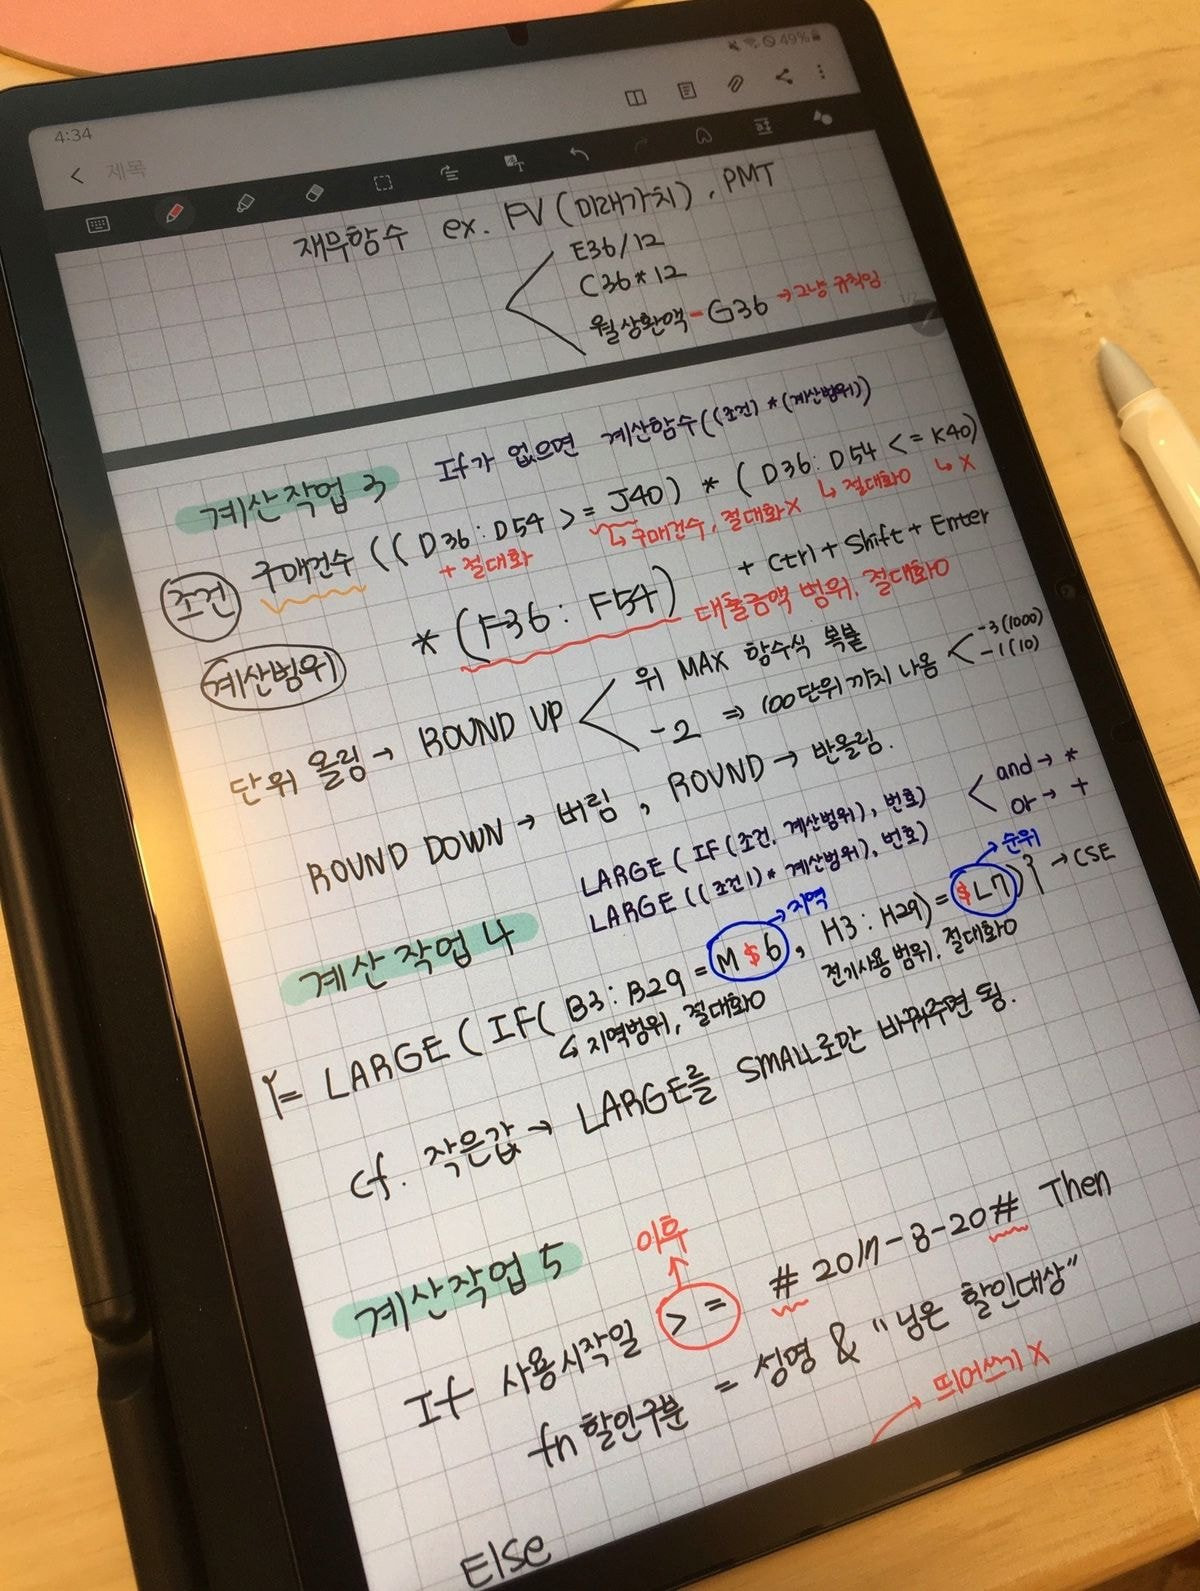 4:34
49%
제목
재무함수 ex. FV (미래가치), PMT
E36/12
C36*12
월상환액-G36 → 그냥 규칙임
If가 없으면 계산함수((조건)*(계산범위))
계산작업 3
조건 구매건수 ((D36:D54 >= J40) * (D36:D54 <= K40)
+ 절대화 ↳ 구매건수, 절대화X ↳ 절대화O ↳ X
계산범위 * (F36:F54) + Ctrl + Shift + Enter
대출금액 범위. 절대화O
단위 올림 → ROUND UP
위 MAX 함수식 복붙
-2 ⇒ 100단위까지 나옴
-3(1000)
-1(10)
ROUND DOWN → 버림, ROUND → 반올림.
LARGE (IF(조건, 계산범위), 번호)
LARGE ((조건1)*계산범위), 번호)
and → *
or → +
계산작업 4
→ 지역 → 순위
{= LARGE (IF(B3:B29 = M$6, H3:H29) = $L7)} → CSE
↳ 지역범위, 절대화O 전기사용 범위. 절대화O
cf. 작은값 → LARGE를 SMALL로만 바꿔주면 됨.
계산작업 5
이후
If 사용시작일 >= #2017-8-20# Then
fn할인구분 = 성명 & "님은 할인대상"
띄어쓰기 X
Else